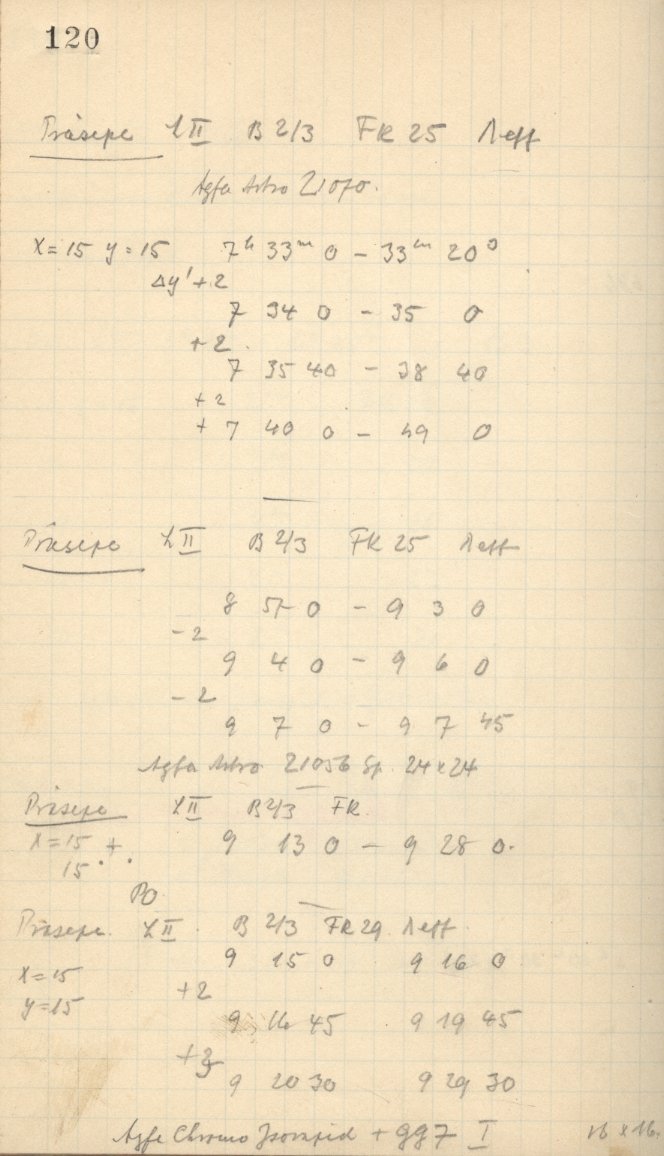 120
Präsepe LII B 2/3 FK 25 λeff
Agfa Astro 21070.
x=15 y=15 7h 33m 0 – 33m 20
Δy'+2
7 34 0 – 35 0
+2
7 35 40 – 38 40
+2
+ 7 40 0 – 49 0
Präsepe LII B 2/3 FK 25 λeff
8 57 0 – 9 3 0
-2
9 4 0 – 9 6 0
-2
9 7 0 – 9 7 45
Agfa Astro 21056 Sp. 24x24
Präsepe LII B 2/3 FK
x=15 9 13 0 – 9 28 0.
15
PO
Präsepe LII B 2/3 FK 29 λeff
9 15 0 9 16 0
x=15
+2
y=15
9 16 45 9 19 45
+3
9 20 30 9 29 30
Agfa Chromo Isorapid + gg7 I 16 x 16